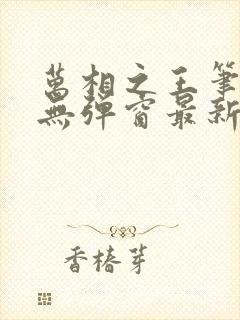 萬相之王筆
無彈窗最新
香椿芽